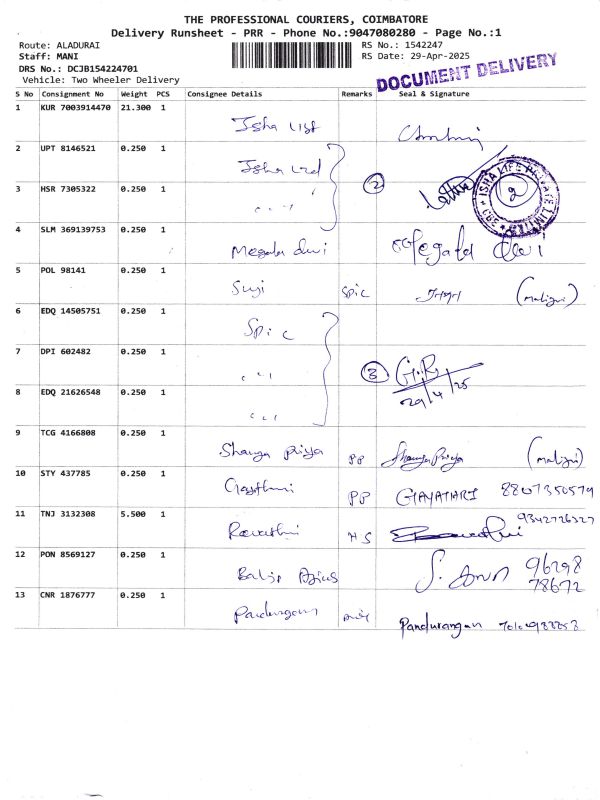 THE PROFESSIONAL COURIERS, COIMBATORE
Delivery Runsheet - PRR - Phone No.:9047080280 - Page No.:1
Route: ALADURAI RS No.: 1542247
Staff: MANI RS Date: 29-Apr-2025
DRS No.: DCJB154224701
Vehicle: Two Wheeler Delivery
DOCUMENT DELIVERY
S No Consignment No Weight PCS Consignee Details Remarks Seal & Signature
1 KUR 7003914470 21.300 1
2 UPT 8146521 0.250 1 Isha Ltd
3 HSR 7305322 0.250 1 2
ISHA LIFE PRIVATE LIMITED CBE
4 SLM 369139753 0.250 1 Megala devi Megala Devi
5 POL 98141 0.250 1 Suji Spic
6 EDQ 14505751 0.250 1 Spic
7 DPI 602482 0.250 1 3
29/4/25
8 EDQ 21626548 0.250 1
9 TCG 4166808 0.250 1 Priya PP Priya
10 STY 437785 0.250 1 PP GAYATHRI 8807350579
11 TNJ 3132308 5.500 1 Revathi HS 9342726327
12 PON 8569127 0.250 1 S. Arun 96298
78672
13 CNR 1876777 0.250 1 Pandurangan Pandurangan